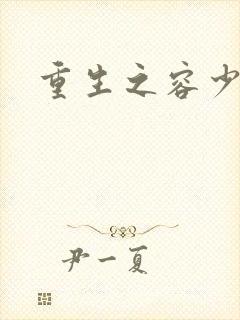 重生之容少
尹一夏